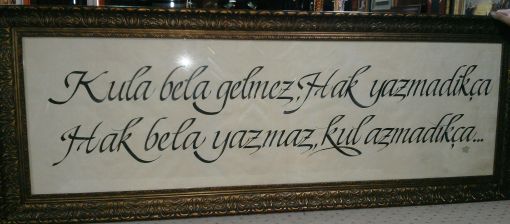 Kula bela gelmez, Hak yazmadıkça
Hak bela yazmaz, kul azmadıkça...